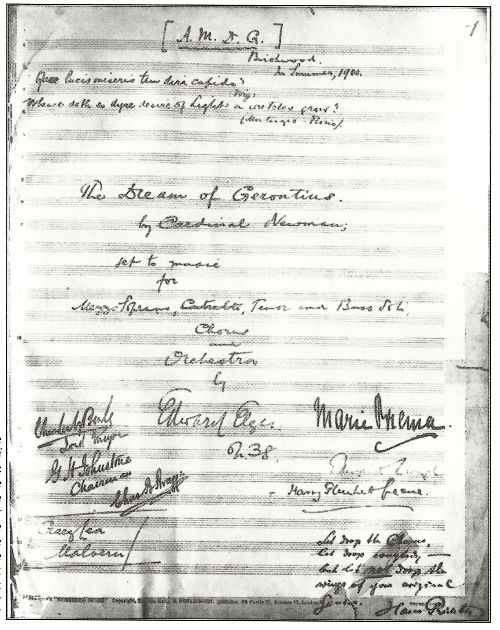 1
[A. M. D. G.]
Birchwood.
In Summer, 1900.
Quae lucis miseris tam dira cupido?
Virg:
Whence doth so dyre desire of Light on wretches grow?
(Montaigne - Florio)
The Dream of Gerontius.
by Cardinal Newman;
set to music
for
Mezzo-Soprano, Contralto, Tenor and Bass Soli,
Chorus
and
Orchestra
by
Edward Elgar.
Op. 38.
Marie Brema.
Lord Mayor
G. H. Johnstone
Chairman
Harry Plunket Greene.
Craeg Lea
Malvern
Let drop the Chorus,
let drop everybody, —
but let not drop the
wings of your original
genius. Hans Richter